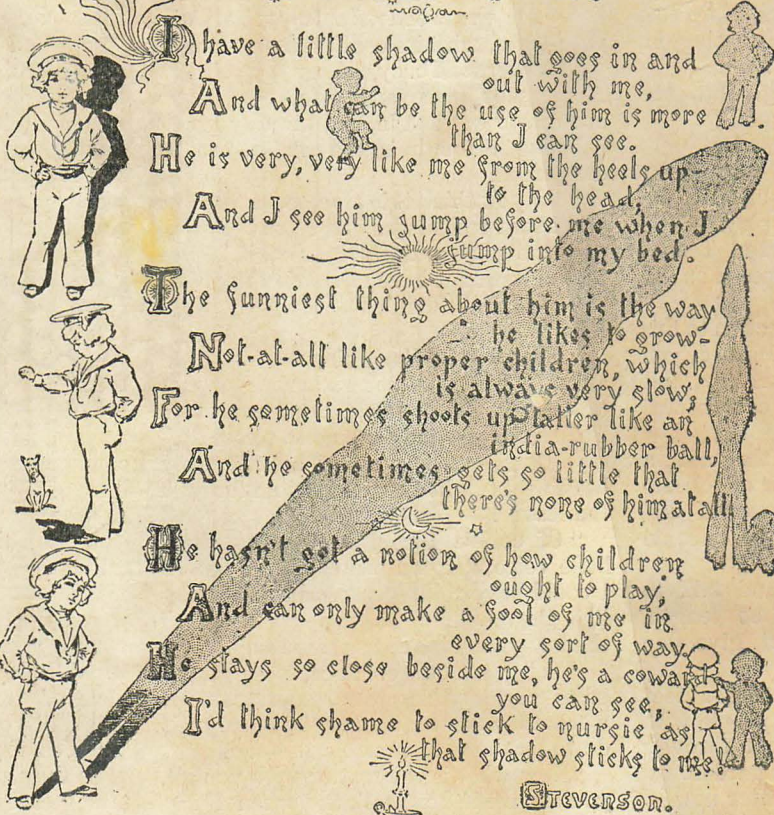 I have a little shadow that goes in and
out with me,
And what can be the use of him is more
than I can see.
He is very, very like me from the heels up-
to the head,
And I see him jump before me when I
jump into my bed.
The funniest thing about him is the way
he likes to grow-
Not-at-all like proper children, which
is always very slow;
For he sometimes shoots up taller like an
india-rubber ball,
And he sometimes gets so little that
there's none of him at all
He hasn't got a notion of how children
ought to play,
And can only make a fool of me in
every sort of way
He stays so close beside me, he's a coward
you can see,
I'd think shame to stick to nursie as
that shadow sticks to me!
STEVENSON.